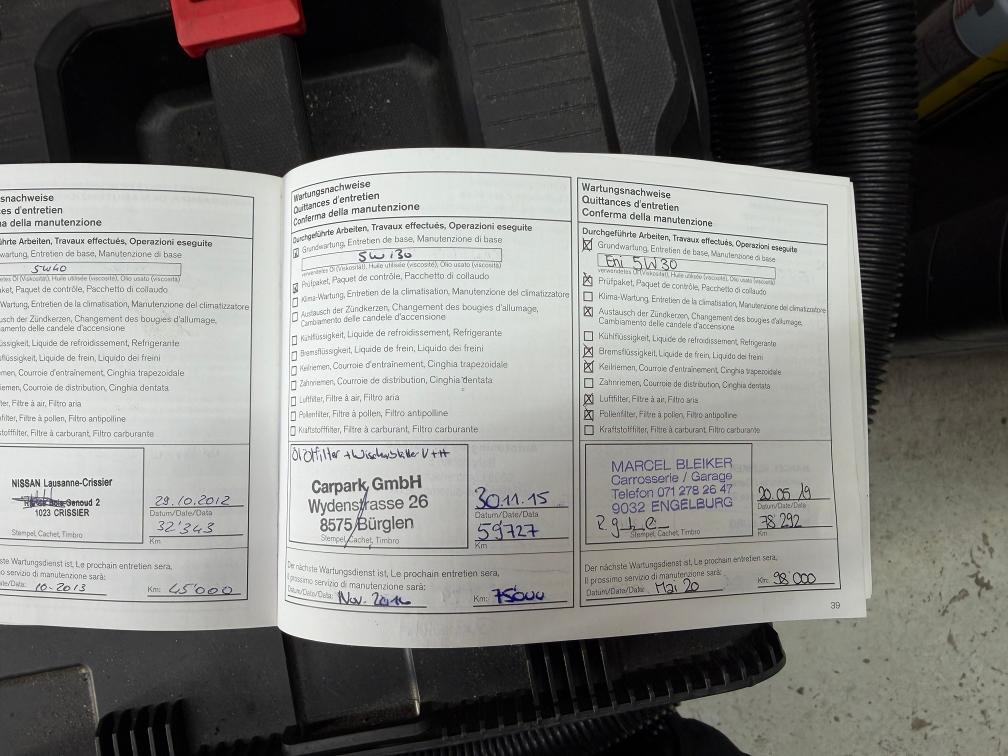 snachweise
ces d'entretien
ma della manutenzione
ührte Arbeiten, Travaux effectués, Operazioni eseguite
5W40
aket, Paquet de contrôle, Pacchetto di collaudo
-Wartung, Entretien de la climatisation, Manutenzione del climatizzatore
sch der Zündkerzen, Changement des bougies d'allumage,
amento delle candele d'accensione
flüssigkeit, Liquide de refroidissement, Refrigerante
flüssigkeit, Liquide de frein, Liquido dei freini
emen, Courroie d'entraînement, Cinghia trapezoidale
riemen, Courroie de distribution, Cinghia dentata
lter, Filtre à air, Filtro aria
nfilter, Filtre à pollen, Filtro antipolline
stofffilter, Filtre à carburant, Filtro carburante
NISSAN Lausanne-Crissier
Genoud 2
1023 CRISSIER
Stempel, Cachet, Timbro
29.10.2012
Datum/Date/Data:
32'343
Km
chste Wartungsdienst ist, Le prochain entretien sera,
o servizio di manutenzione sarà:
ate/Data: 10-2013 Km: 45'000
Wartungsnachweise
Quittances d'entretien
Conferma della manutenzione
Durchgeführte Arbeiten, Travaux effectués, Operazioni eseguite
Grundwartung, Entretien de base, Manutenzione di base
5W30
verwendetes Öl (Viskosität), Huile utilisée (viscosité), Olio usato (viscosità)
Prüfpaket, Paquet de contrôle, Pacchetto di collaudo
Klima-Wartung, Entretien de la climatisation, Manutenzione del climatizzatore
Austausch der Zündkerzen, Changement des bougies d'allumage,
Cambiamento delle candele d'accensione
Kühlflüssigkeit, Liquide de refroidissement, Refrigerante
Bremsflüssigkeit, Liquide de frein, Liquido dei freini
Keilriemen, Courroie d'entraînement, Cinghia trapezoidale
Zahnriemen, Courroie de distribution, Cinghia dentata
Luftfilter, Filtre à air, Filtro aria
Pollenfilter, Filtre à pollen, Filtro antipolline
Kraftstofffilter, Filtre à carburant, Filtro carburante
V+H
Carpark GmbH
Wydenstrasse 26
8575 Bürglen
Stempel, Cachet, Timbro
30.11.15
Datum/Date/Data:
59727
Km
Der nächste Wartungsdienst ist, Le prochain entretien sera,
Il prossimo servizio di manutenzione sarà:
Datum/Date/Data: Nov. 2016 Km: 75000
Wartungsnachweise
Quittances d'entretien
Conferma della manutenzione
Durchgeführte Arbeiten, Travaux effectués, Operazioni eseguite
Grundwartung, Entretien de base, Manutenzione di base
Eni 5W30
verwendetes Öl (Viskosität), Huile utilisée (viscosité), Olio usato (viscosità)
Prüfpaket, Paquet de contrôle, Pacchetto di collaudo
Klima-Wartung, Entretien de la climatisation, Manutenzione del climatizzatore
Austausch der Zündkerzen, Changement des bougies d'allumage,
Cambiamento delle candele d'accensione
Kühlflüssigkeit, Liquide de refroidissement, Refrigerante
Bremsflüssigkeit, Liquide de frein, Liquido dei freini
Keilriemen, Courroie d'entraînement, Cinghia trapezoidale
Zahnriemen, Courroie de distribution, Cinghia dentata
Luftfilter, Filtre à air, Filtro aria
Pollenfilter, Filtre à pollen, Filtro antipolline
Kraftstofffilter, Filtre à carburant, Filtro carburante
MARCEL BLEIKER
Carrosserie / Garage
Telefon 071 278 26 47
9032 ENGELBURG
Stempel, Cachet, Timbro
20.05.19
Datum/Date/Data:
78 292
Km
Der nächste Wartungsdienst ist, Le prochain entretien sera,
Il prossimo servizio di manutenzione sarà:
Datum/Date/Data: Mai 20 Km: 98'000
39